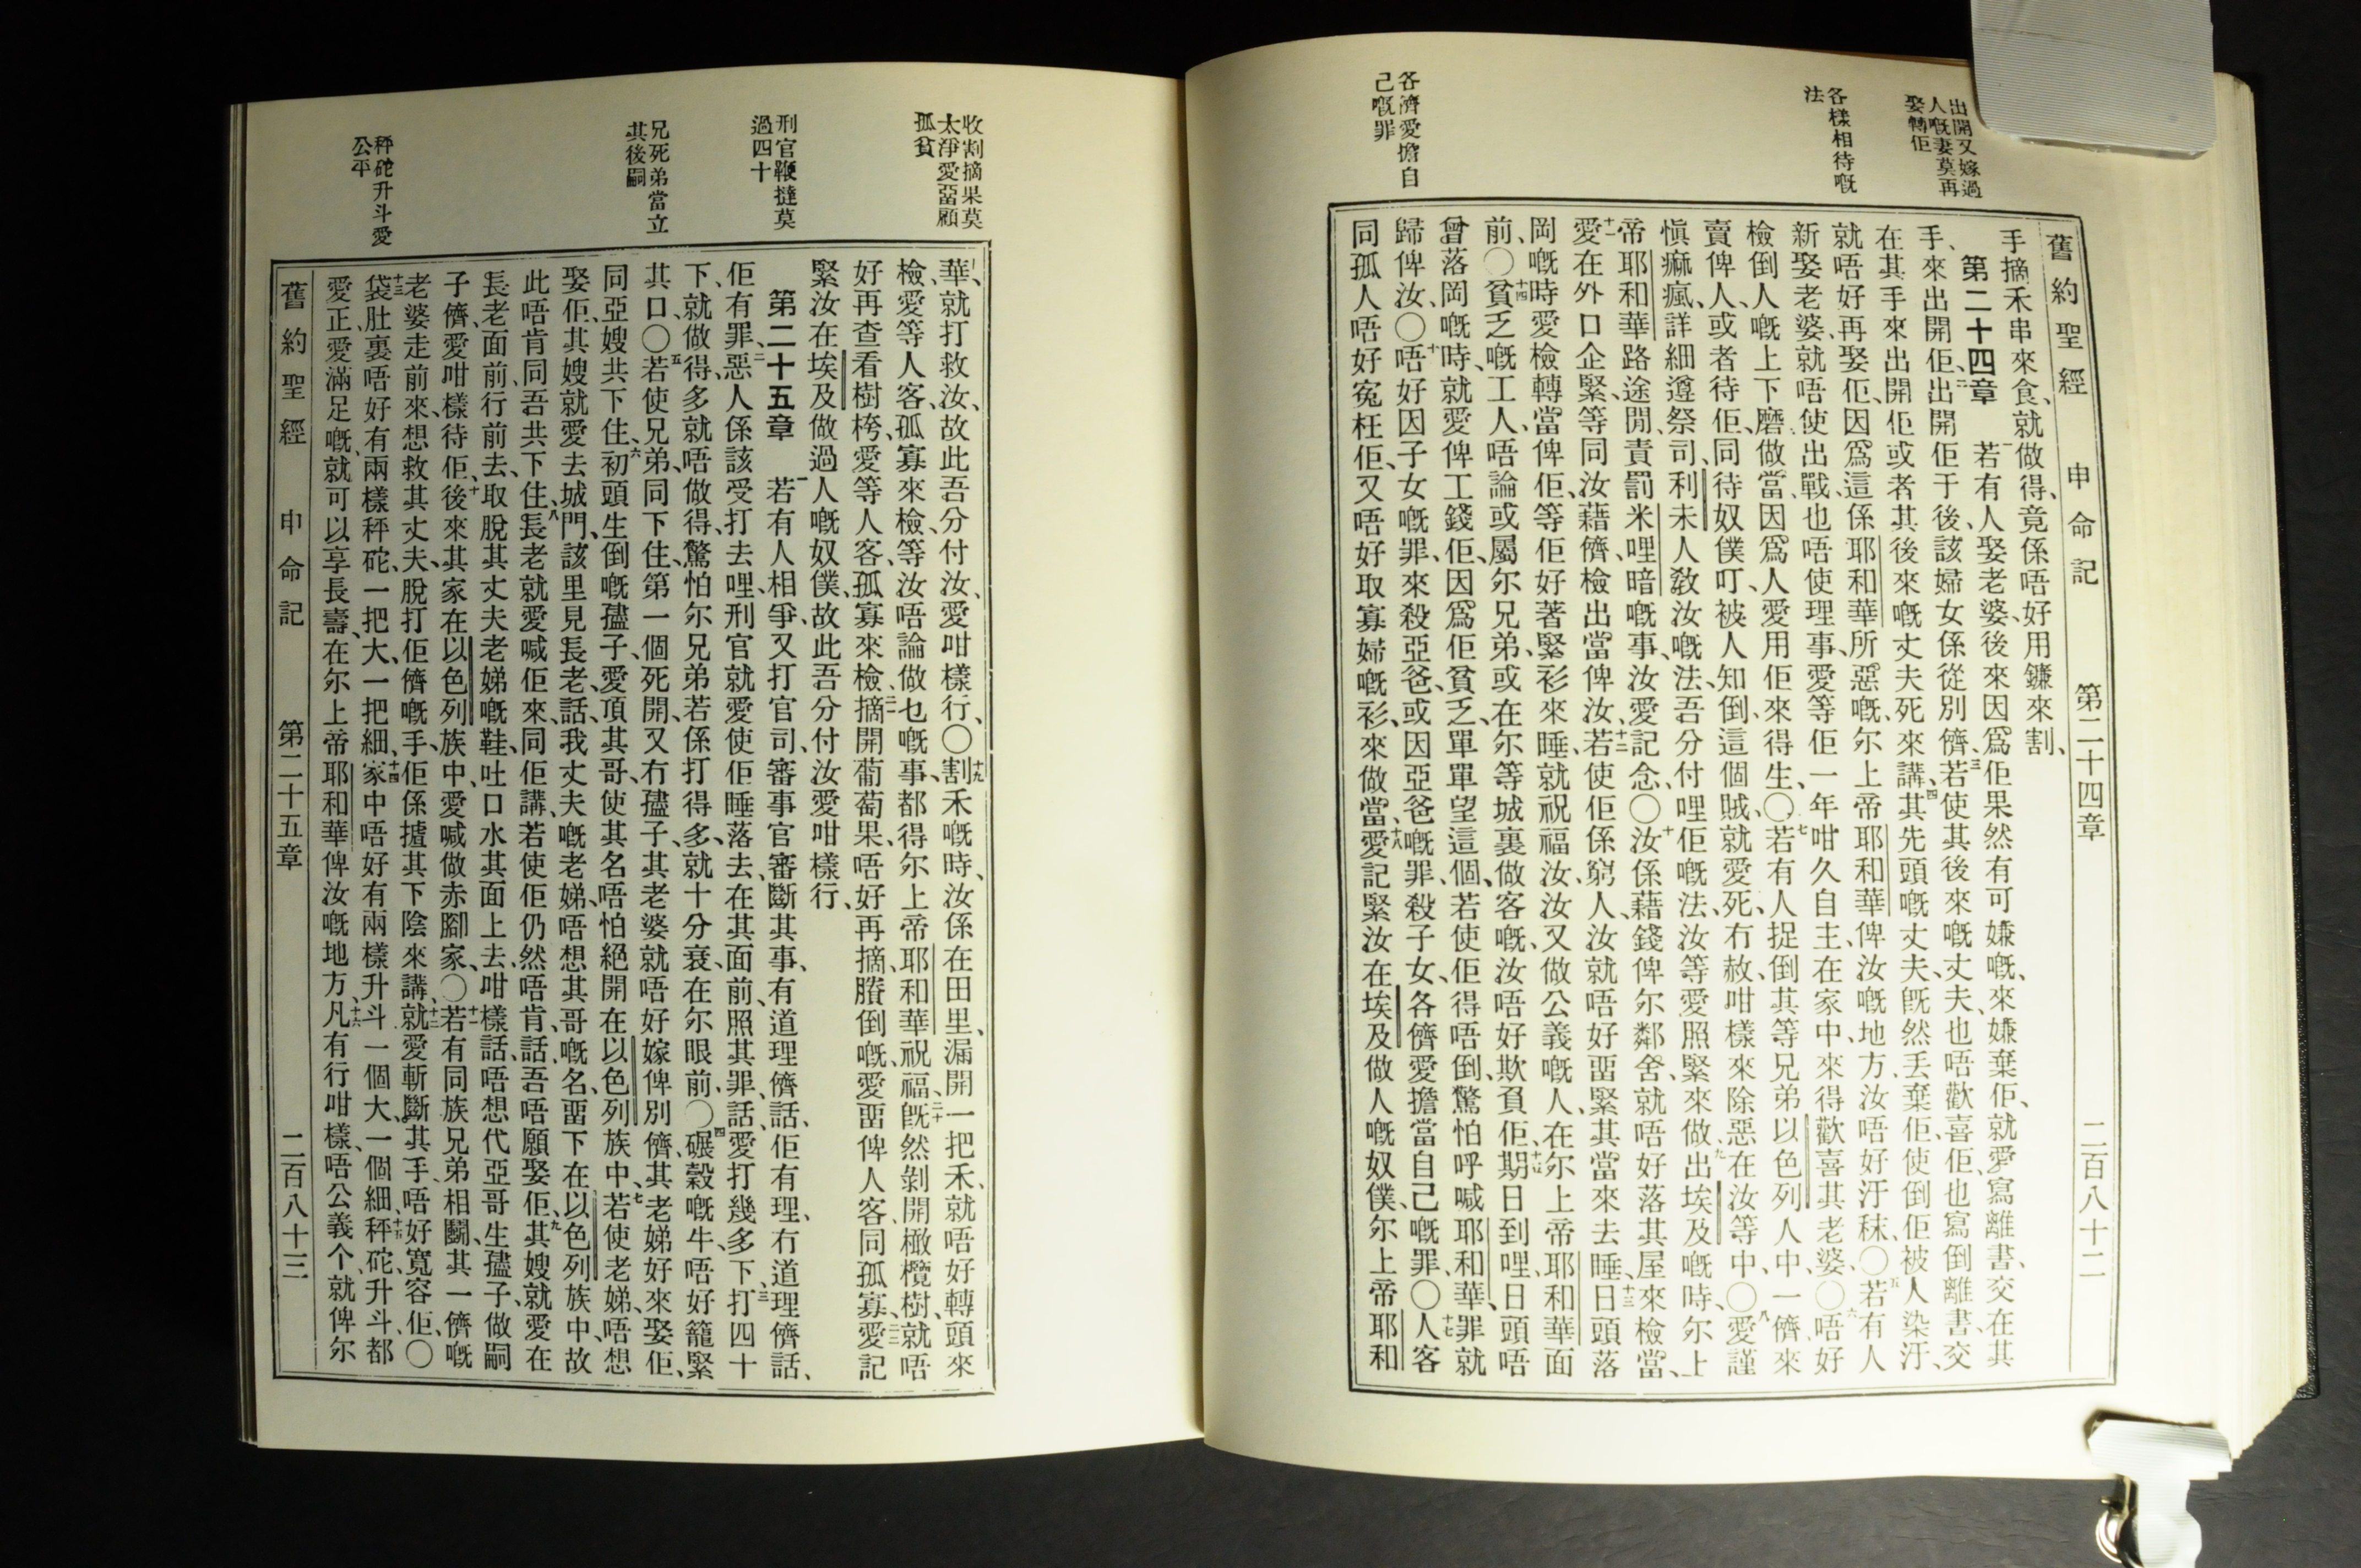 出開又嫁過
人嘅妻莫再
娶轉佢
各樣相待嘅
法
各儕愛擔自
己嘅罪
舊約聖經　申命記　第二十四章　二百八十二
手摘禾串來食、就做得、竟係唔好用鐮來割、
第二十四章　一若有人娶老婆、後來因爲佢果然有可嫌嘅、來嫌棄佢、就愛寫離書、交在其
手、來出開佢、二出開佢于後、該婦女係從別儕、三若使其後來嘅丈夫也唔歡喜佢、也寫倒離書、交
在其手來出開佢、或者其後來嘅丈夫死來講、四其先頭嘅丈夫、旣然丢棄佢、使倒佢被人染汙、
就唔好再娶佢、因爲這係耶和華所惡嘅、尔上帝耶和華俾汝嘅地方、汝唔好汙秣〇五若有人
新娶老婆、就唔使出戰、也唔使理事、愛等佢一年咁久自主、在家中、來得歡喜其老婆、〇六唔好
檢倒人嘅上下磨做當、因爲人愛用佢來得生、〇七若有人捉倒其等兄弟以色列人中、一儕來
賣俾人、或者待佢、同待奴僕叮、被人知倒、這個賊、就愛死、冇赦、咁樣來除惡在汝等中、〇八愛謹
愼痲瘋、詳細遵祭司、利未人敎汝嘅法、吾分付哩佢嘅法、汝等愛照緊來做、九出埃及嘅時、尔上
帝耶和華路途閒、責罰米哩暗嘅事、汝愛記念、〇十汝係藉錢俾尔鄰舍、就唔好落其屋來檢當、
十一愛在外口企緊、等同汝藉儕、檢出當俾汝、十二若使佢係窮人、汝就唔好畱緊其當來去睡、十三日頭落
岡嘅時、愛檢轉當俾佢、等佢好著緊衫來睡、就祝福汝、汝又做公義嘅人、在尔上帝耶和華面
前、〇十四貧乏嘅工人、唔論或屬尔兄弟、或在尔等城裏做客嘅、汝唔好欺負佢、十五期日到哩、日頭唔
曾落岡嘅時、就愛俾工錢佢、因爲佢貧乏、單單望這個、若使佢得唔倒、驚怕呼喊耶和華、罪就
歸俾汝、〇十六唔好因子女嘅罪、來殺亞爸、或因亞爸嘅罪、殺子女、各儕愛擔當自己嘅罪、〇十七人客
同孤人唔好寃枉佢、又唔好取寡婦嘅衫、來做當、十八愛記緊汝在埃及做人嘅奴僕、尔上帝耶和
收割摘果莫
太淨愛畱顧
孤貧
刑官鞭撻莫
過四十
兄死弟當立
其後嗣
秤砣升斗愛
公平
華、就打救汝、故此吾分付汝、愛咁樣行、〇十九割禾嘅時、汝係在田里、漏開一把禾、就唔好轉頭來
檢、愛等人客、孤寡來檢、等汝唔論做乜嘅事、都得尔上帝耶和華祝福、二十旣然剝開橄欖樹、就唔
好再查看樹桍、愛等人客、孤寡來檢、二一摘開葡萄果、唔好再摘、賸倒嘅、愛畱俾人客、同孤寡、二二愛記
緊汝在埃及做過人嘅奴僕、故此吾分付汝愛咁樣行、
第二十五章　一若有人相爭、又打官司、審事官審斷其事、有道理儕話、佢有理、冇道理儕話、
佢有罪、二惡人係該受打去哩、刑官就愛使佢睡落去、在其面前、照其罪、話、愛打幾多下、三打四十
下、就做得、多就唔做得、驚怕尔兄弟若係打得多、就十分衰、在尔眼前、〇四碾穀嘅牛、唔好籠緊
其口〇五若使兄弟、同下住、第一個死開、又冇孻子、其老婆就唔好嫁俾別儕、其老娣好來娶佢、
同亞嫂共下住、六初頭生倒嘅孻子、愛頂其哥、使其名、唔怕絕開在以色列族中、七若使老娣、唔想
娶佢、其嫂就愛去城門、該里見長老、話、我丈夫嘅老娣、唔想其哥嘅名、畱下在以色列族中、故
此唔肯同吾共下住、八長老就愛喊佢來、同佢講、若使佢仍然唔肯、話、吾唔願娶佢、九其嫂就愛在
長老面前、行前去、取脫其丈夫老娣嘅鞋、吐口水其面上去、咁樣話、唔想代亞哥生孻子、做嗣
子儕、愛咁樣待佢、十後來其家在以色列族中、愛喊做赤腳家、〇十一若有同族兄弟相鬬、其一儕嘅
老婆走前來、想救其丈夫、脫打佢儕嘅手、佢係攎其下陰來講、十二就愛斬斷其手、唔好寬容佢、〇
十三袋肚裏唔好有兩樣秤砣、一把大、一把細、十四家中唔好有兩樣升斗、一個大、一個細、十五秤砣、升斗、都
愛正、愛滿足嘅、就可以享長壽、在尔上帝耶和華俾汝嘅地方、十六凡有行咁樣、唔公義个、就俾尔
舊約聖經　申命記　第二十五章　二百八十三